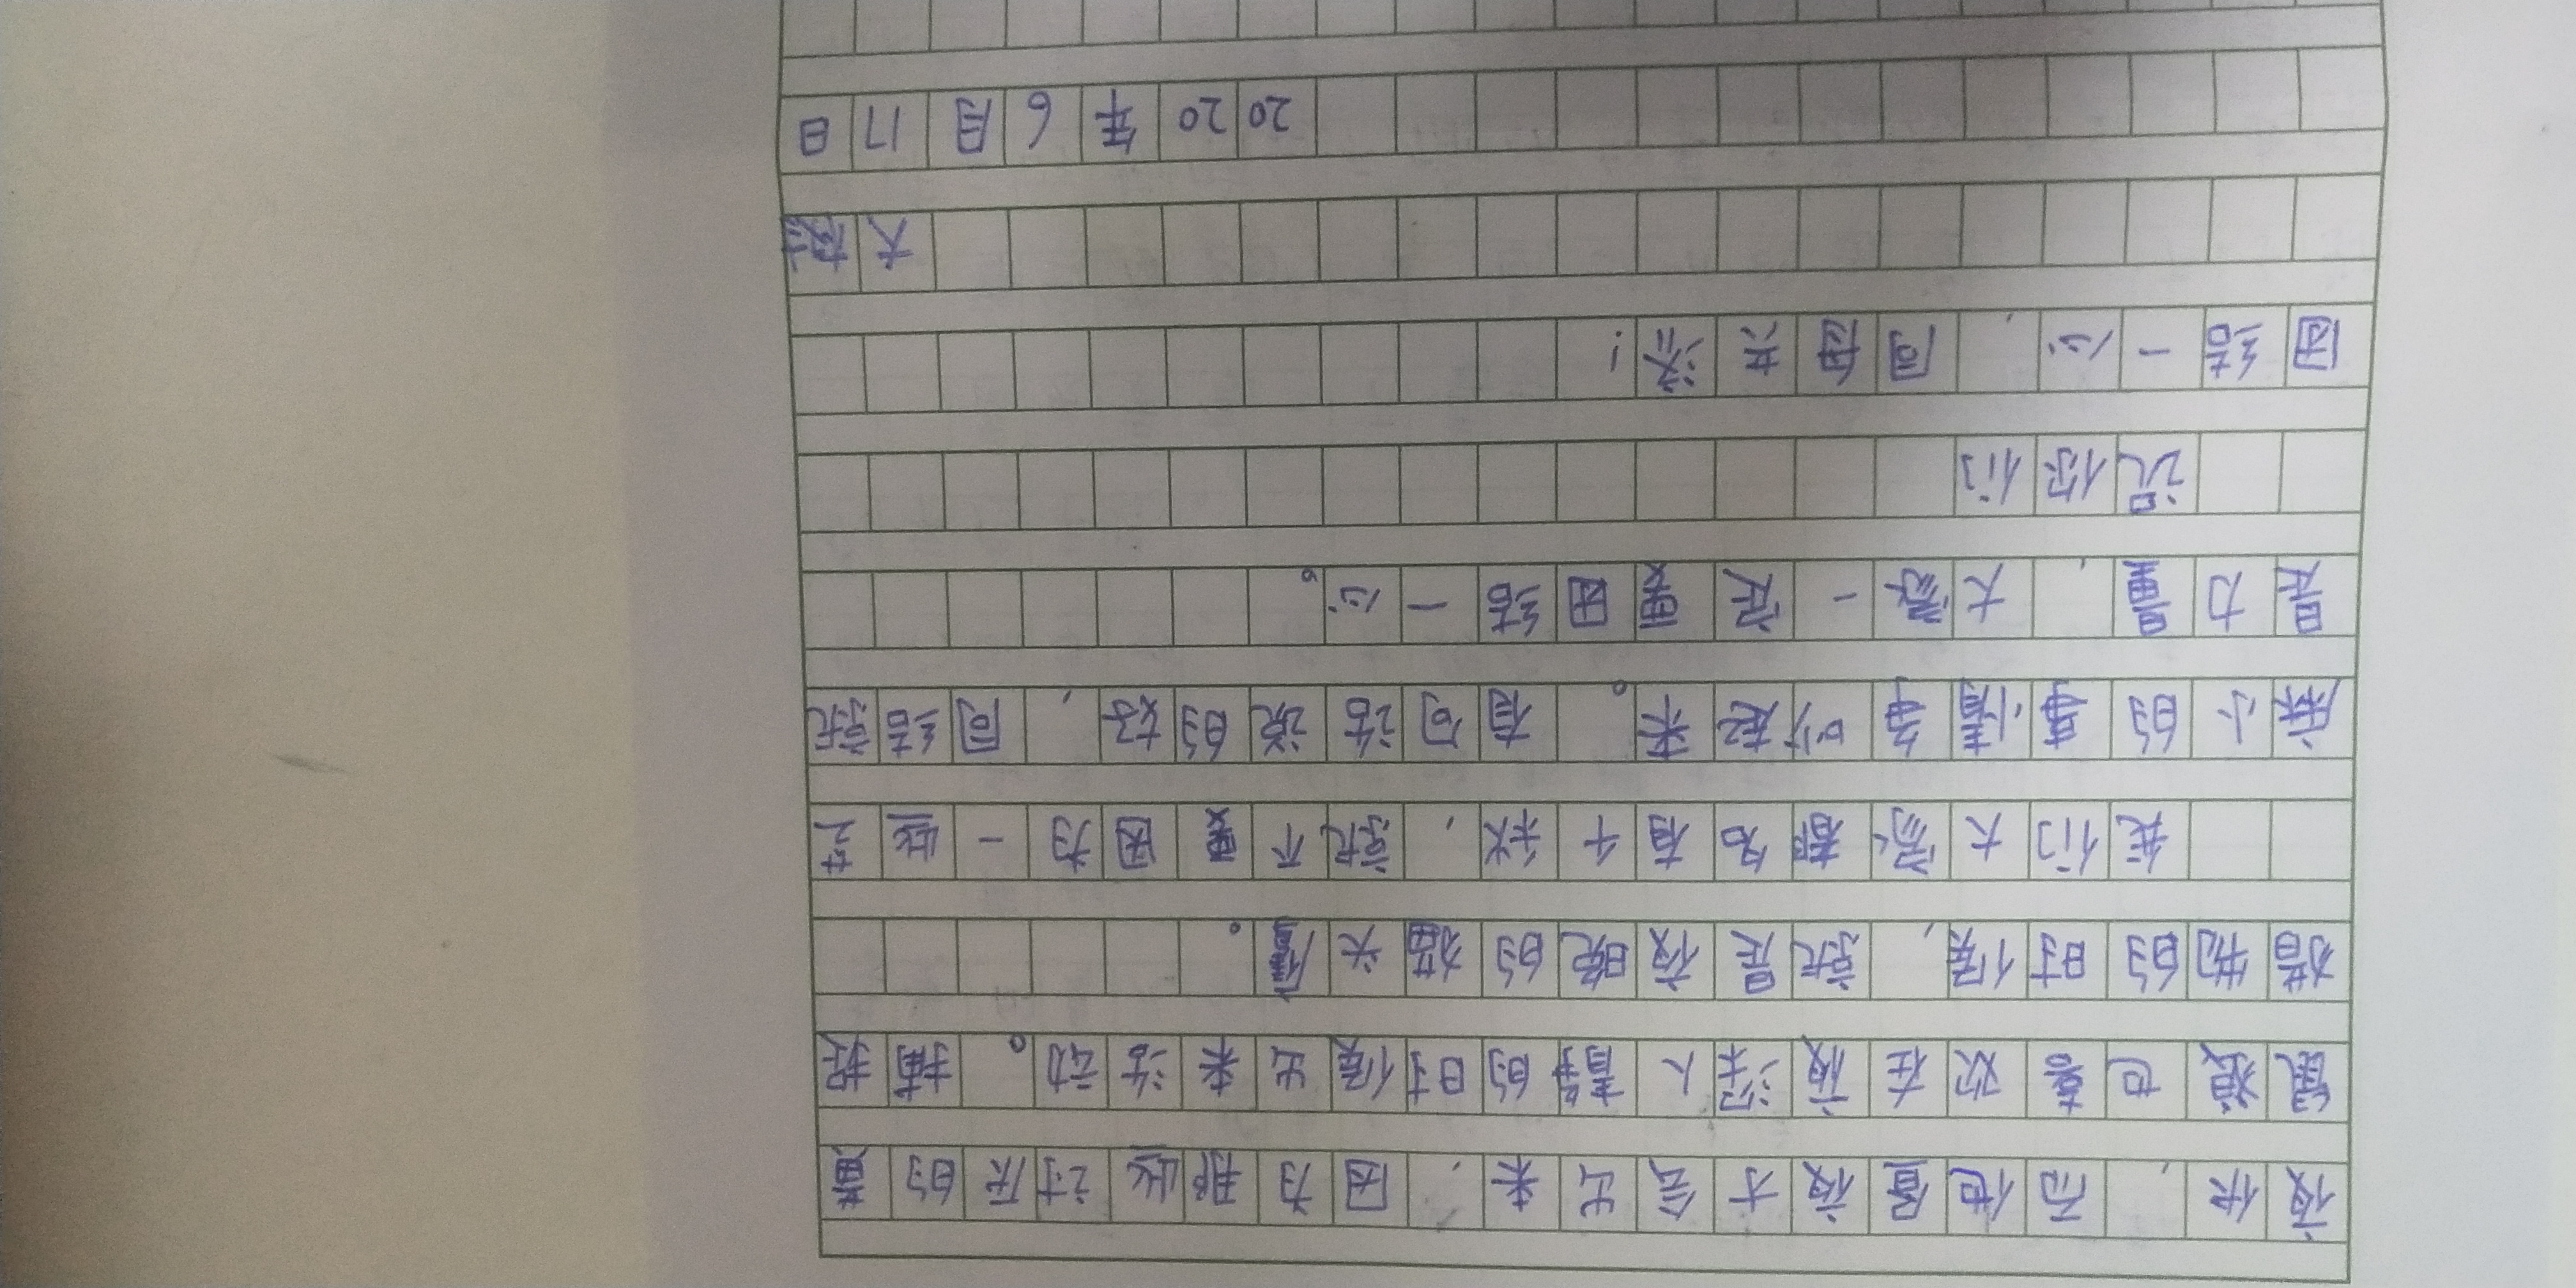 夜伏，而他宿夜才会出来，因为那些讨厌的
鼠猹也喜欢在夜深人静的时候出来活动。捕
猎物的时候，就是夜晚的猫头鹰。
我们大家都各有千秋，就不要因为一些芝
麻小的事情争吵起来。有句话说的好，同结就
是力量，大家一定要团结一心。
祝你们
团结一心，同舟共济！
大
2020年6月17日